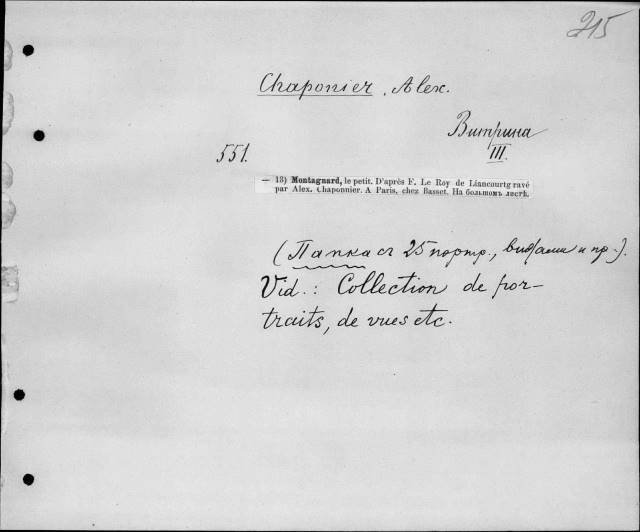 215
Chaponier, Alex.
Витрина
III.
551.
— 13) Montagnard, le petit. D'après F. Le Roy de Liancourtg ravé
par Alex. Chaponnier. A Paris, chez Basset. На большомъ листѣ.
(Папка съ 25 портр., видами и пр.).
Vid.: Collection de por-
traits, de vues etc.